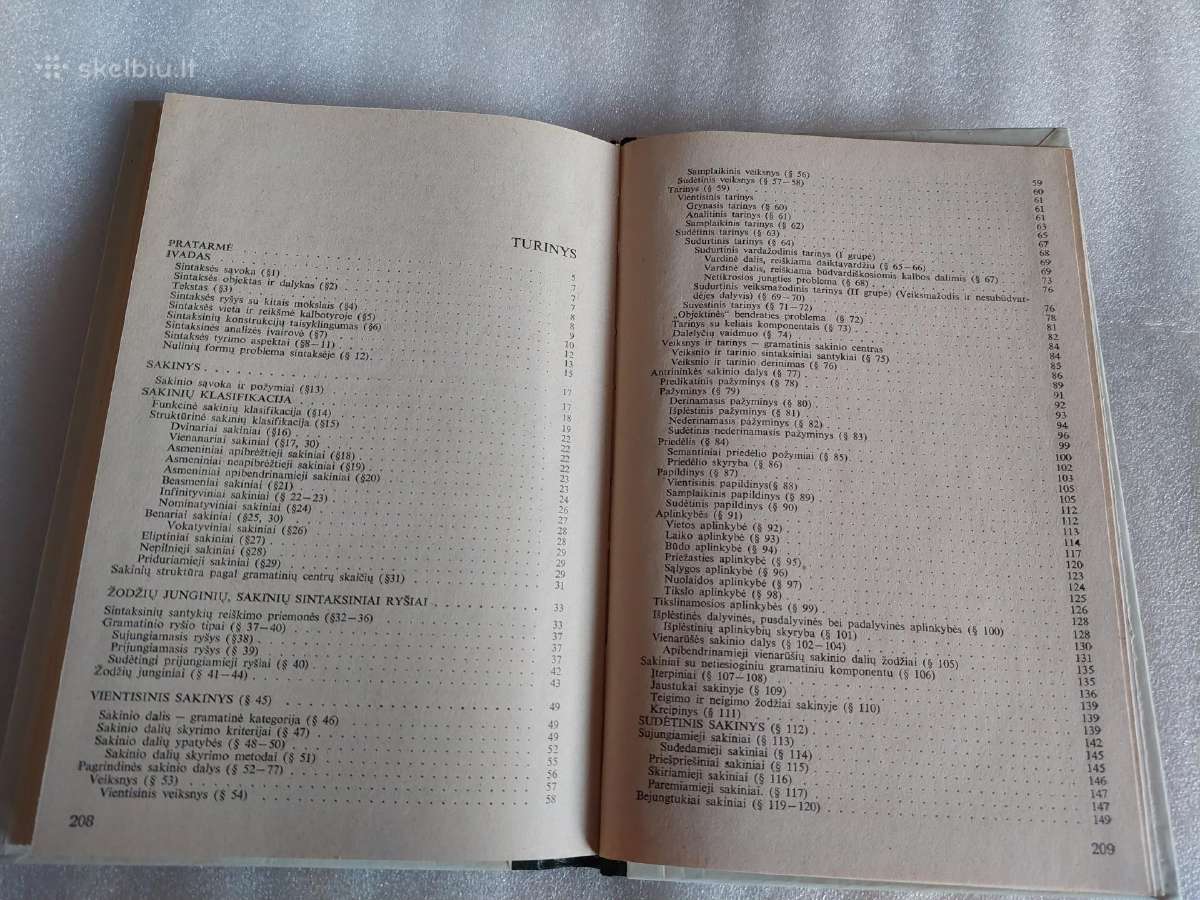 skelbiu.lt
TURINYS
PRATARMĖ 5
ĮVADAS 7
Sintaksės sąvoka (§1) 7
Sintaksės objektas ir dalykas (§2) 7
Tekstas (§3) 8
Sintaksės ryšys su kitais mokslais (§4) 8
Sintaksės vieta ir reikšmė kalbotyroje (§5) 9
Sintaksinių konstrukcijų taisyklingumas (§6) 10
Sintaksinės analizės įvairovė (§7) 12
Sintaksės tyrimo aspektai (§8—11) 13
Nulinių formų problema sintaksėje (§ 12) 15
SAKINYS 17
Sakinio sąvoka ir požymiai (§13) 17
SAKINIŲ KLASIFIKACIJA 18
Funkcinė sakinių klasifikacija (§14)
Struktūrinė sakinių klasifikacija (§15)
Dvinariai sakiniai (§16)
Vienanariai sakiniai (§17, 30)
Asmeniniai apibrėžtieji sakiniai (§18)
Asmeniniai neapibrėžtieji sakiniai (§19)
Asmeniniai apibendrinamieji sakiniai (§20)
Beasmeniai sakiniai (§21)
Infinityviniai sakiniai (§ 22—23)
Nominatyviniai sakiniai (§24)
Benariai sakiniai (§25, 30)
Vokatyviniai sakiniai (§26)
Eliptiniai sakiniai (§27)
Nepilnieji sakiniai (§28)
Priduriamieji sakiniai (§29)
Sakinių struktūra pagal gramatinių centrų skaičių (§31) 31
ŽODŽIŲ JUNGINIŲ, SAKINIŲ SINTAKSINIAI RYŠIAI 33
Sintaksinių santykių reiškimo priemonės (§32—36) 33
Gramatinio ryšio tipai (§ 37—40) 37
Sujungiamasis ryšys (§38) 37
Prijungiamasis ryšys (§ 39) 37
Sudėtingi prijungiamieji ryšiai (§ 40) 42
Žodžių junginiai (§ 41—44) 43
VIENTISINIS SAKINYS (§ 45) 49
Sakinio dalis — gramatinė kategorija (§ 46) 49
Sakinio dalių skyrimo kriterijai (§ 47) 49
Sakinio dalių ypatybės (§ 48—50) 52
Sakinio dalių skyrimo metodai (§ 51) 55
Pagrindinės sakinio dalys (§ 52—77) 56
Veiksnys (§ 53) 57
Vientisinis veiksnys (§ 54) 58
208
Samplaikinis veiksnys (§ 56) 59
Sudėtinis veiksnys (§ 57—58) 60
Tarinys (§ 59) 61
Vientisinis tarinys 61
Grynasis tarinys (§ 60) 61
Analitinis tarinys (§ 61) 63
Samplaikinis tarinys (§ 62) 65
Sudėtinis tarinys (§ 63) 67
Sudurtinis tarinys (§ 64) 68
Sudurtinis vardažodinis tarinys (I grupė) 69
Vardinė dalis, reiškiama daiktavardžiu (§ 65—66) 69
Vardinė dalis, reiškiama būdvardiškosiomis kalbos dalimis (§ 67) 73
Netikrosios jungties problema (§ 68) 76
Sudurtinis veiksmažodinis tarinys (II grupė) (Veiksmažodis ir nesubūdvar-
dėjęs dalyvis) (§ 69—70) 76
Suvestinis tarinys (§ 71—72) 78
„Objektinės“ bendraties problema (§ 72) 81
Tarinys su keliais komponentais (§ 73) 82
Dalelyčių vaidmuo (§ 74) 84
Veiksnys ir tarinys — gramatinis sakinio centras 84
Veiksnio ir tarinio sintaksiniai santykiai (§ 75) 85
Veiksnio ir tarinio derinimas (§ 76) 86
Antrininkės sakinio dalys (§ 77) 89
Predikatinis pažyminys (§ 78) 91
Pažyminys (§ 79) 92
Derinamasis pažyminys (§ 80) 93
Išplėstinis pažyminys (§ 81) 94
Nederinamasis pažyminys (§ 82) 96
Sudėtinis nederinamasis pažyminys (§ 83) 99
Priedėlis (§ 84) 100
Semantiniai priedėlio požymiai (§ 85) 102
Priedėlio skyryba (§ 86) 103
Papildinys (§ 87) 105
Vientisinis papildinys(§ 88) 105
Samplaikinis papildinys (§ 89) 112
Sudėtinis papildinys (§ 90) 112
Aplinkybės (§ 91) 113
Vietos aplinkybė (§ 92) 114
Laiko aplinkybė (§ 93) 117
Būdo aplinkybė (§ 94) 120
Priežasties aplinkybė (§ 95) 123
Sąlygos aplinkybė (§ 96) 124
Nuolaidos aplinkybė (§ 97) 125
Tikslo aplinkybė (§ 98) 126
Tikslinamosios aplinkybės (§ 99) 128
Išplėstinės dalyvinės, pusdalyvinės bei padalyvinės aplinkybės (§ 100) 128
Išplėstinių aplinkybių skyryba (§ 101) 130
Vienarūšės sakinio dalys (§ 102—104) 131
Apibendrinamieji vienarūšių sakinio dalių žodžiai (§ 105) 135
Sakiniai su netiesioginiu gramatiniu komponentu (§ 106) 135
Įterpiniai (§ 107—108) 136
Jaustukai sakinyje (§ 109) 139
Teigimo ir neigimo žodžiai sakinyje (§ 110) 139
Kreipinys (§ 111) 139
SUDĖTINIS SAKINYS (§ 112) 142
Sujungiamieji sakiniai (§ 113) 145
Sudedamieji sakiniai (§ 114) 145
Priešpriešiniai sakiniai (§ 115) 146
Skiriamieji sakiniai (§ 116) 147
Paremiamieji sakiniai. (§ 117) 147
Bejungtukiai sakiniai (§ 119—120) 149
209